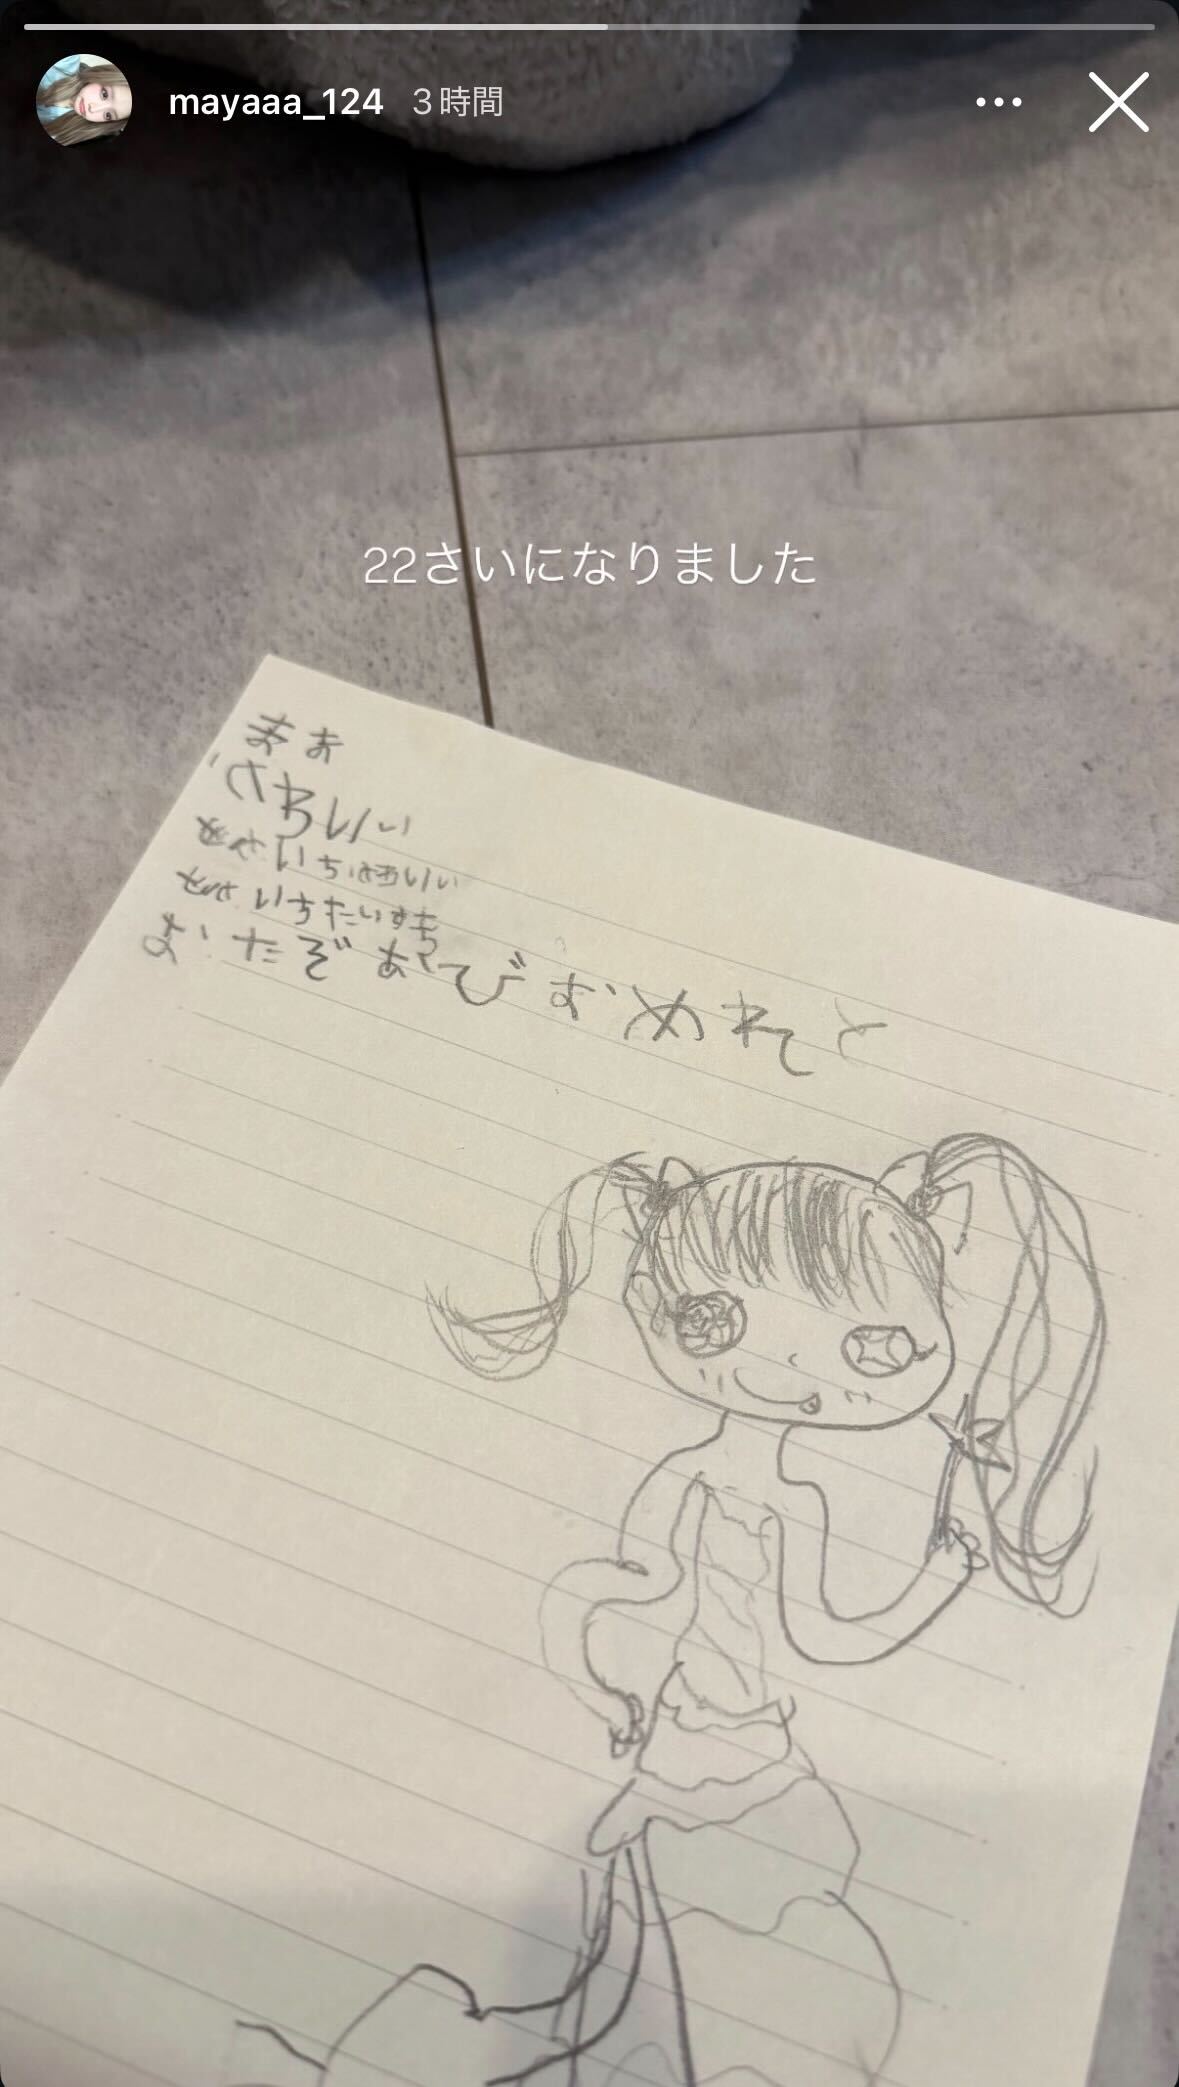 mayaaa_124 3時間
22さいになりました
まぁ
かわいい
せかいちかわいい
せかいちだいすき
おたぞおびおめれと